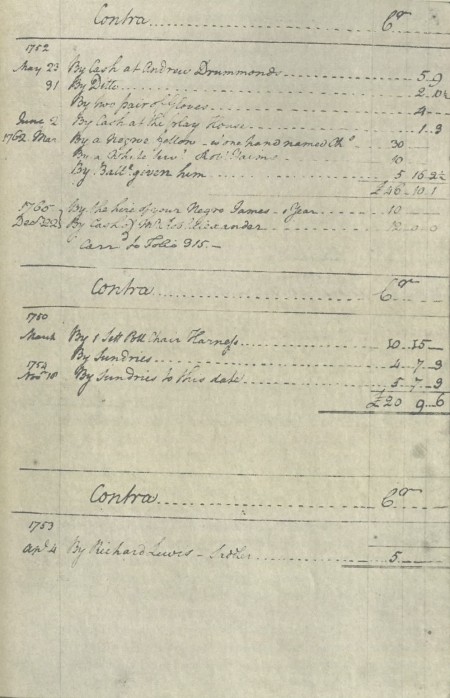 Contra Cr
1752
May 23 By Cash at Andrew Drummonds 5..9
31 By Ditto 2
By two pair of Gloves 4
June 2 By Cash at the Play House 1..3
1762 Mar By a Negroe fellow one hand named 30
By a White Servt Robt 10
By Ballce given him 5 16 2½
£46..10.1
1765 By the hire of your Negro James 1 Year 10
Decr 22 By Cash of Mr Robt Alexander
Carrd to Folio 315.
Contra Cr
1750
March By 1 Sett Pott Chair Harness 10..15
By Sundries 4..7..9
1752
Novr 18 By Sundries to this date 5..7..9
£20 9..6
Contra Cr
1753
Apl 4 By Richard Lewis 5